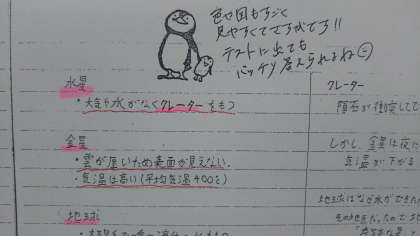 色や図もすごく
見やすくてさすがです!!
テストに出ても
バッチリ答えられるね
水星
・大気や水がなくクレーターをもつ
クレーター
隕石が衝突して
金星
・雲が厚いため表面が見えない.
・気温は高い(平均気温400℃)
しかし、金星は夜に
気温が下がる
地球
地球はなぜ水ができた